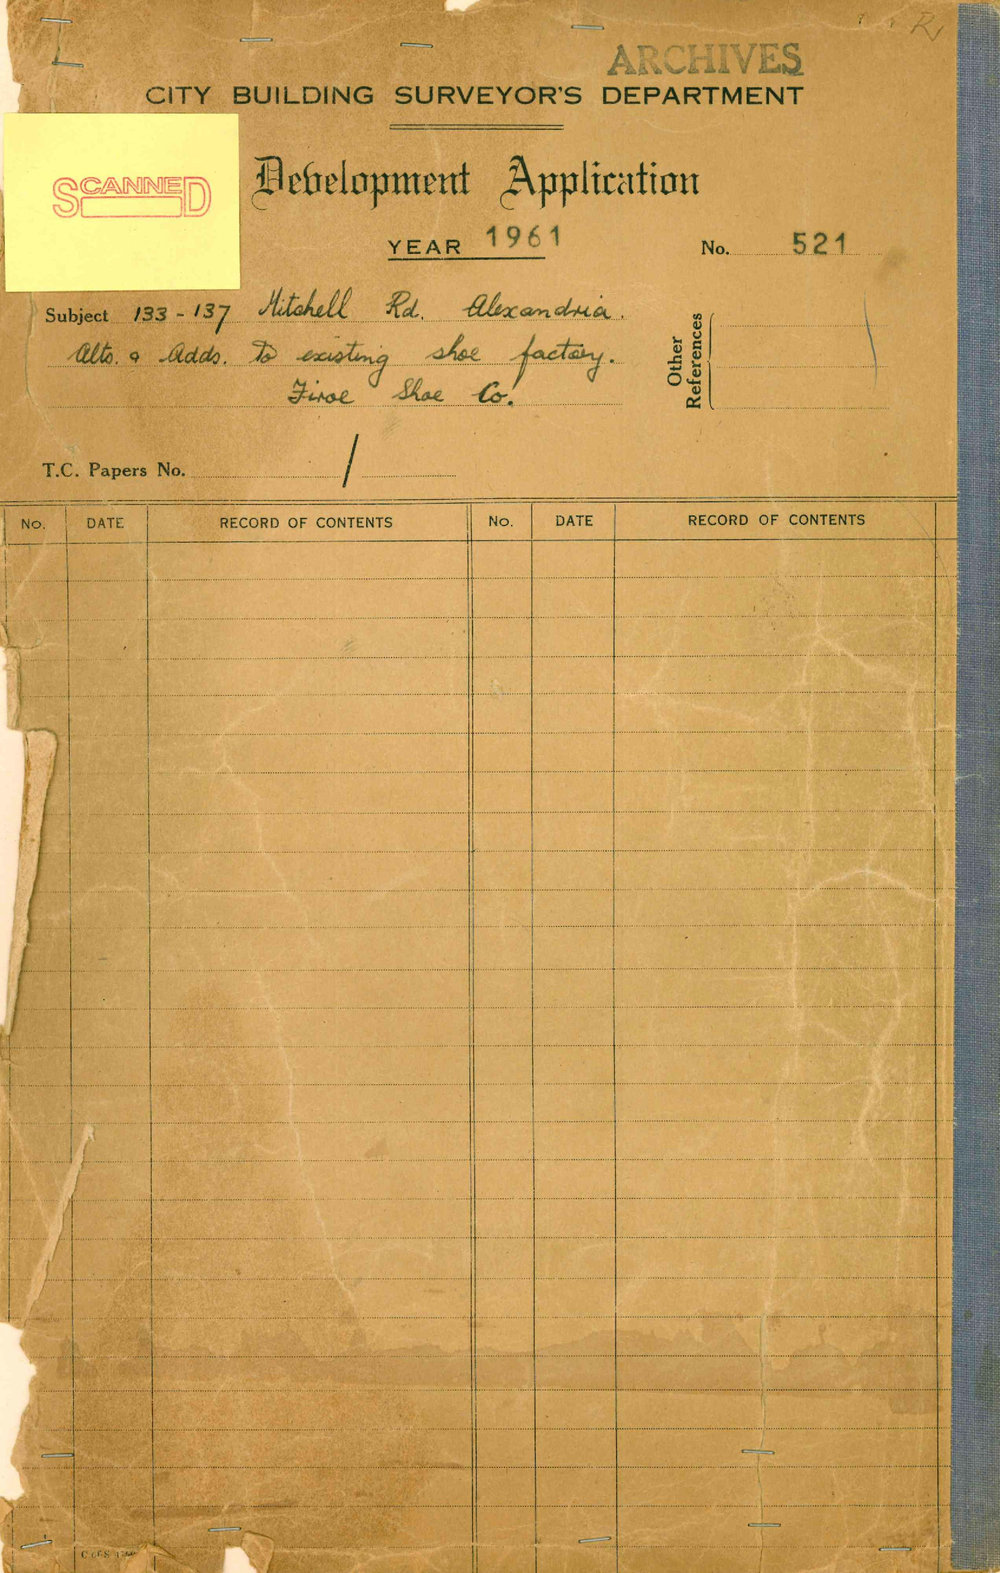 R
ARCHIVES
CITY BUILDING SURVEYOR'S DEPARTMENT
SCANNED
Development Application
YEAR 1961 No. 521
Subject 133 - 137 Mitchell Rd. Alexandria.
Alts. & Adds. to existing shoe factory.
Shoe Co.
Other References
T.C. Papers No. /
No. DATE RECORD OF CONTENTS No. DATE RECORD OF CONTENTS